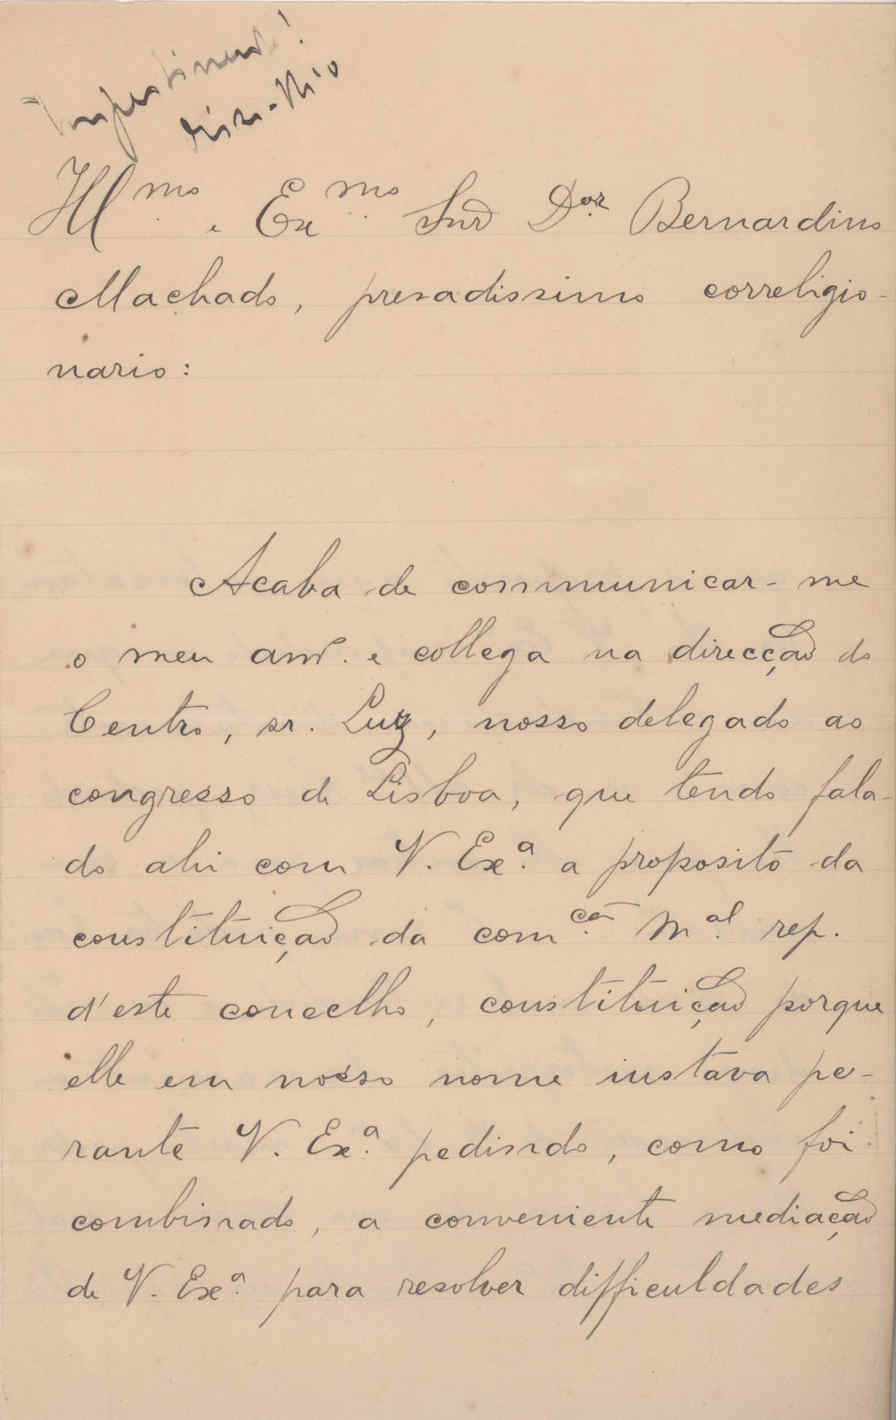 Impertinente!
disse-lh'o
Ill.mo e Ex.mo Snr Dor. Bernardino
Machado, presadissimo correligio-
nario:
Acaba de communicar-me
o meu amº. e collega na direcção do
Centro, sr. Luz, nosso delegado ao
congresso de Lisboa, que tendo fala-
do ahi com V. Ex.ª a proposito da
constituição da com.ção M.al rep.
d'este concelho, constituição porque
elle em nosso nome instava pe-
rante V. Ex.ª pedindo, como foi
combinado, a conveniente mediação
de V. Ex.ª para resolver difficuldades